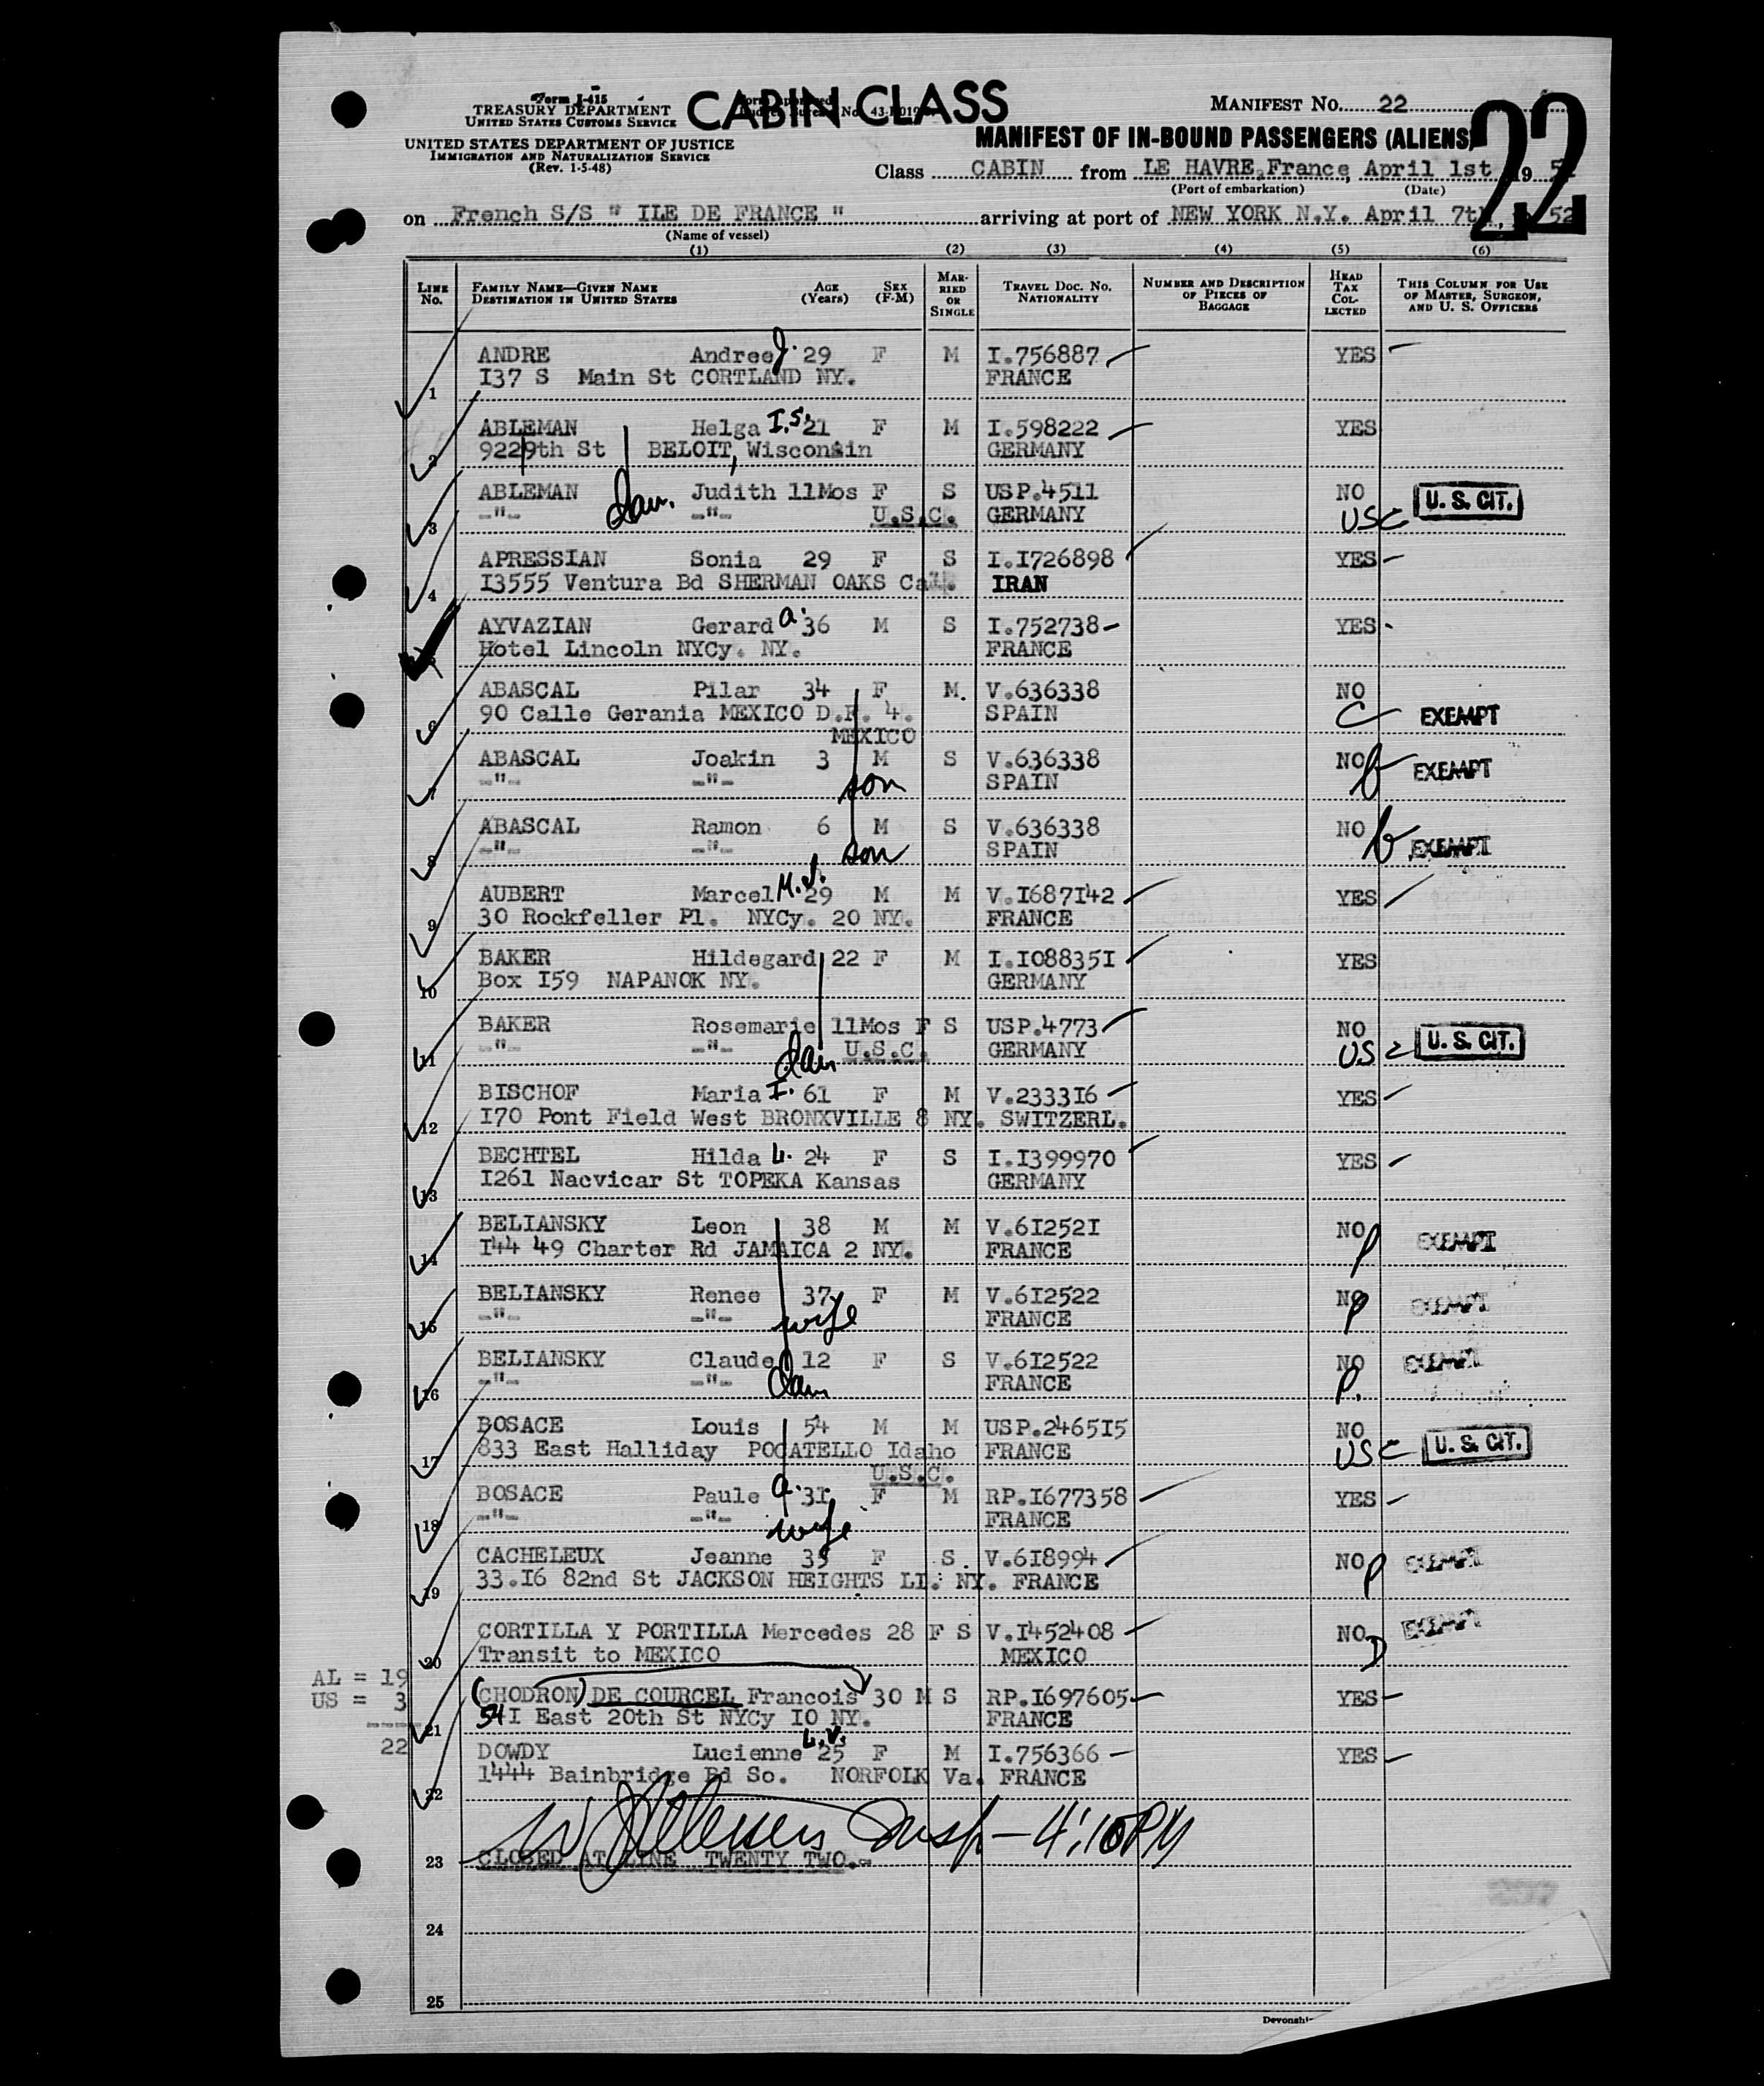 Form I-415
TREASURY DEPARTMENT
UNITED STATES CUSTOMS SERVICE
CABIN CLASS
MANIFEST NO. 22
22
UNITED STATES DEPARTMENT OF JUSTICE
IMMIGRATION AND NATURALIZATION SERVICE
(Rev. 1-5-48)
MANIFEST OF IN-BOUND PASSENGERS (ALIENS)
Class CABIN from LE HAVRE, France, April 1st 19
(Port of embarkation) (Date)
on French S/S " ILE DE FRANCE " arriving at port of NEW YORK N.Y. April 7th, 52
(Name of vessel)
(1) (2) (3) (4) (5) (6)
LINE No. FAMILY NAME—GIVEN NAME DESTINATION IN UNITED STATES AGE (Years) SEX (F-M) MARRIED OR SINGLE TRAVEL DOC. NO. NATIONALITY NUMBER AND DESCRIPTION OF PIECES OF BAGGAGE HEAD TAX COLLECTED THIS COLUMN FOR USE OF MASTER, SURGEON, AND U. S. OFFICERS
ANDRE Andree J. 29 F M I.756887 YES
1 I37 S Main St CORTLAND NY. FRANCE
ABLEMAN Helga I.S. 21 F M I.598222 YES
2 922 9th St BELOIT, Wisconsin GERMANY
ABLEMAN dau. Judith 11Mos F S USP.4511 NO U. S. CIT.
3 -"- -"- U.S.C. GERMANY USC
APRESSIAN Sonia 29 F S I.I726898 YES
4 I3555 Ventura Bd SHERMAN OAKS Cal. IRAN
AYVAZIAN Gerard A. 36 M S I.752738 YES
Hotel Lincoln NYCy. NY. FRANCE
ABASCAL Pilar 34 F M. V.636338 NO
6 90 Calle Gerania MEXICO D.F. 4. SPAIN C EXEMPT
MEXICO
ABASCAL Joakin 3 M S V.636338 NO EXEMPT
7 -"- -"- son SPAIN
ABASCAL Ramon 6 M S V.636338 NO EXEMPT
8 -"- -"- son SPAIN
AUBERT Marcel M.J. 29 M M V.I687I42 YES
9 30 Rockfeller Pl. NYCy. 20 NY. FRANCE
BAKER Hildegard 22 F M I.I08835I YES
10 Box I59 NAPANOK NY. GERMANY
BAKER Rosemarie 11Mos F S USP.4773 NO U. S. CIT.
11 -"- -"- dau U.S.C. GERMANY USC
BISCHOF Maria I. 61 F M V.2333I6 YES
12 I70 Pont Field West BRONXVILLE 8 NY. SWITZERL.
BECHTEL Hilda L. 24 F S I.I399970 YES
13 I261 Nacvicar St TOPEKA Kansas GERMANY
BELIANSKY Leon 38 M M V.6I252I NO EXEMPT
14 I44 49 Charter Rd JAMAICA 2 NY. FRANCE p
BELIANSKY Renee 37 F M V.6I2522 NO p EXEMPT
15 -"- -"- wife FRANCE
BELIANSKY Claude 12 F S V.6I2522 NO EXEMPT
16 -"- -"- Dau FRANCE p.
BOSACE Louis 54 M M USP.2465I5 NO U. S. CIT.
17 833 East Halliday POCATELLO Idaho FRANCE USC
U.S.C.
BOSACE Paule A. 31 F M RP.I677358 YES
18 -"- -"- wife FRANCE
CACHELEUX Jeanne 35 F S. V.6I8994 NO p EXEMPT
19 33.I6 82nd St JACKSON HEIGHTS LI. NY. FRANCE
CORTILLA Y PORTILLA Mercedes 28 F S V.I452408 NO D EXEMPT
20 Transit to MEXICO MEXICO
AL = 19
(CHODRON) DE COURCEL Francois 30 M S RP.I697605 YES
US = 3
21 54I East 20th St NYCy IO NY. FRANCE
22
DOWDY Lucienne L.V. 25 F M I.756366 YES
22 1444 Bainbridge Bd So. NORFOLK Va. FRANCE
Insp - 4:10 PM
23 CLOSED AT LINE TWENTY TWO.-
24
25